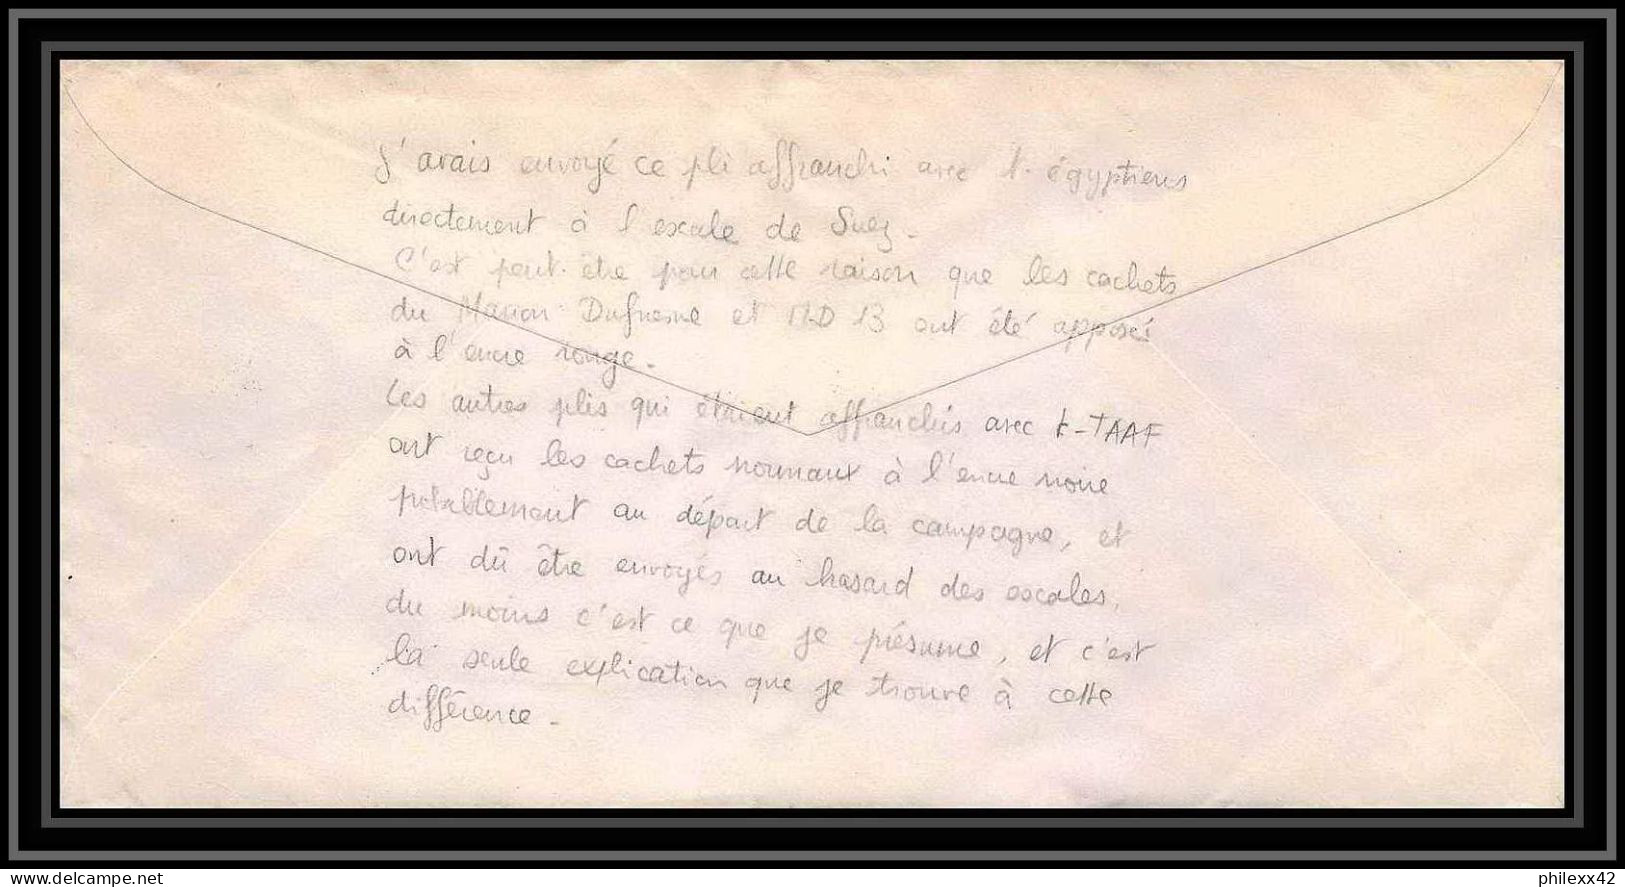 J'avais envoyé ce pli affranchi avec t. égyptiens
directement à l'escale de Suez.
C'est peut-être pour cette raison que les cachets
du Marion Dufresne et MD 13 ont été apposé
à l'encre rouge.
Les autres plis qui étaient affranchis avec t-TAAF
ont reçu les cachets normaux à l'encre noire
probablement au départ de la campagne, et
ont dû être envoyés au hasard des escales,
du moins c'est ce que je présume, et c'est
la seule explication que je trouve à cette
différence.
delcampe.net
philexx42